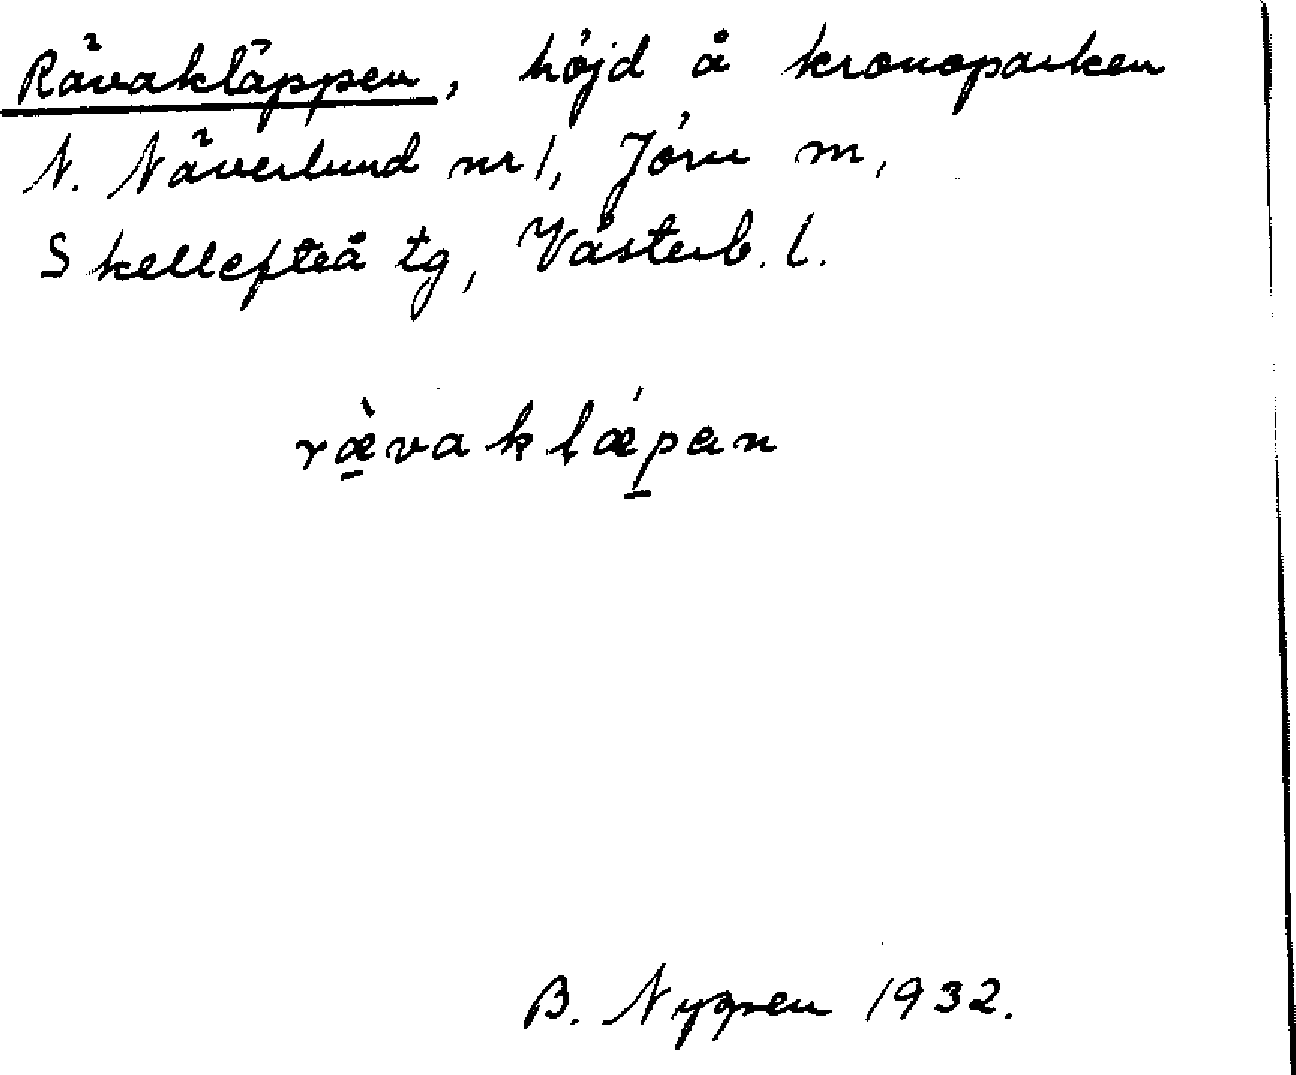 Rävakläppen, höjd å kronoparken
N. Näverlund nr 1, Jörn m,
Skellefteå tg, Västerb. l.
ræ̀vaklǽpan
B. Nygren 1932.